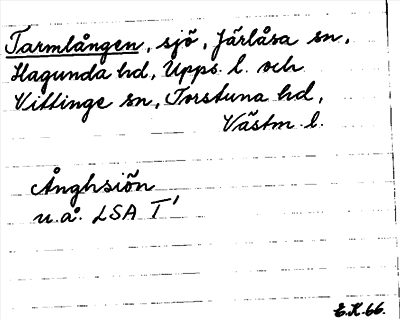 Tarmlången, sjö, Järlåsa sn,
Hagunda hd, Upps. l. och
Vittinge sn, Torstuna hd,
Västm. l.
Ånghsiõn
u.å. LSA T'
E.K. 66.